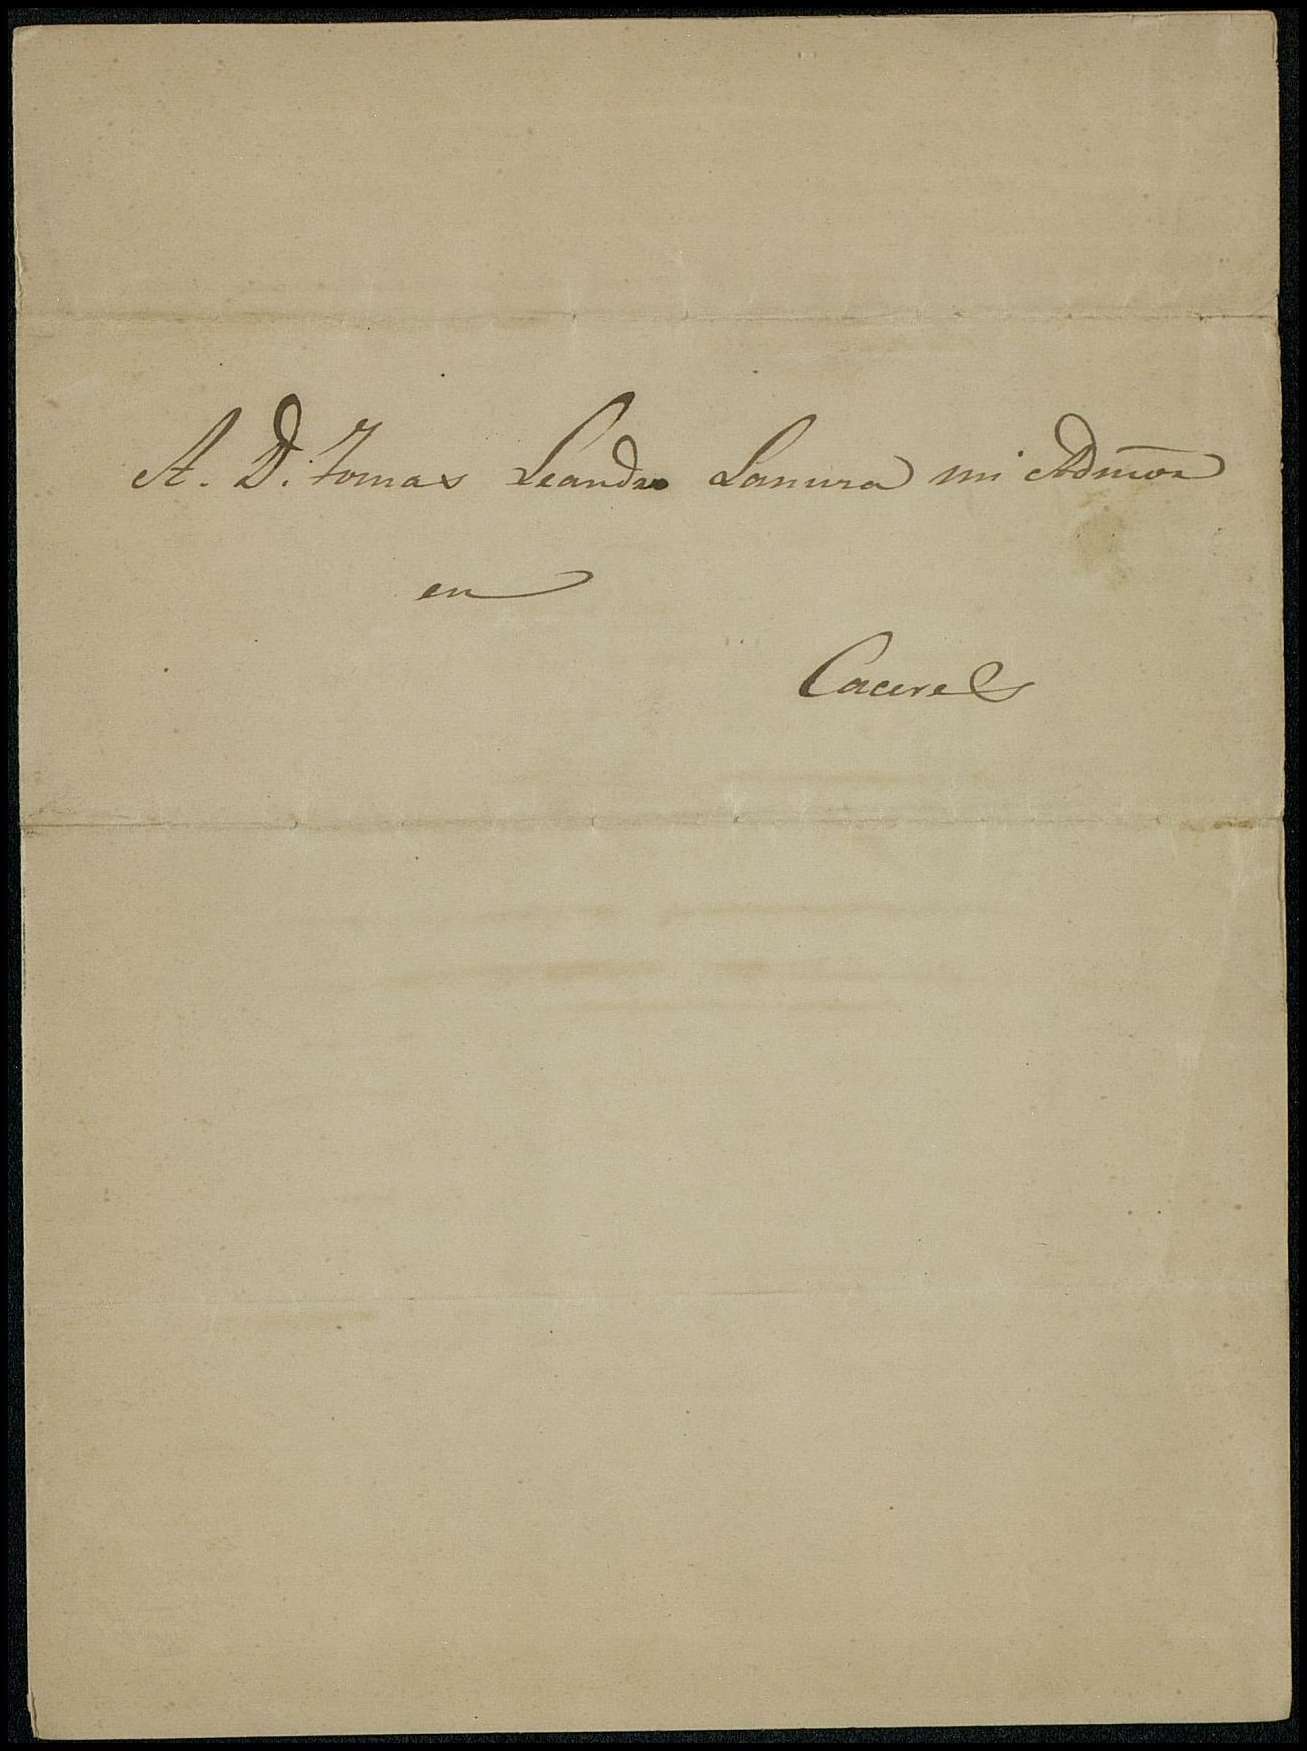 A. D. Tomas Leandro Lanura mi Admōr
en
Caceres